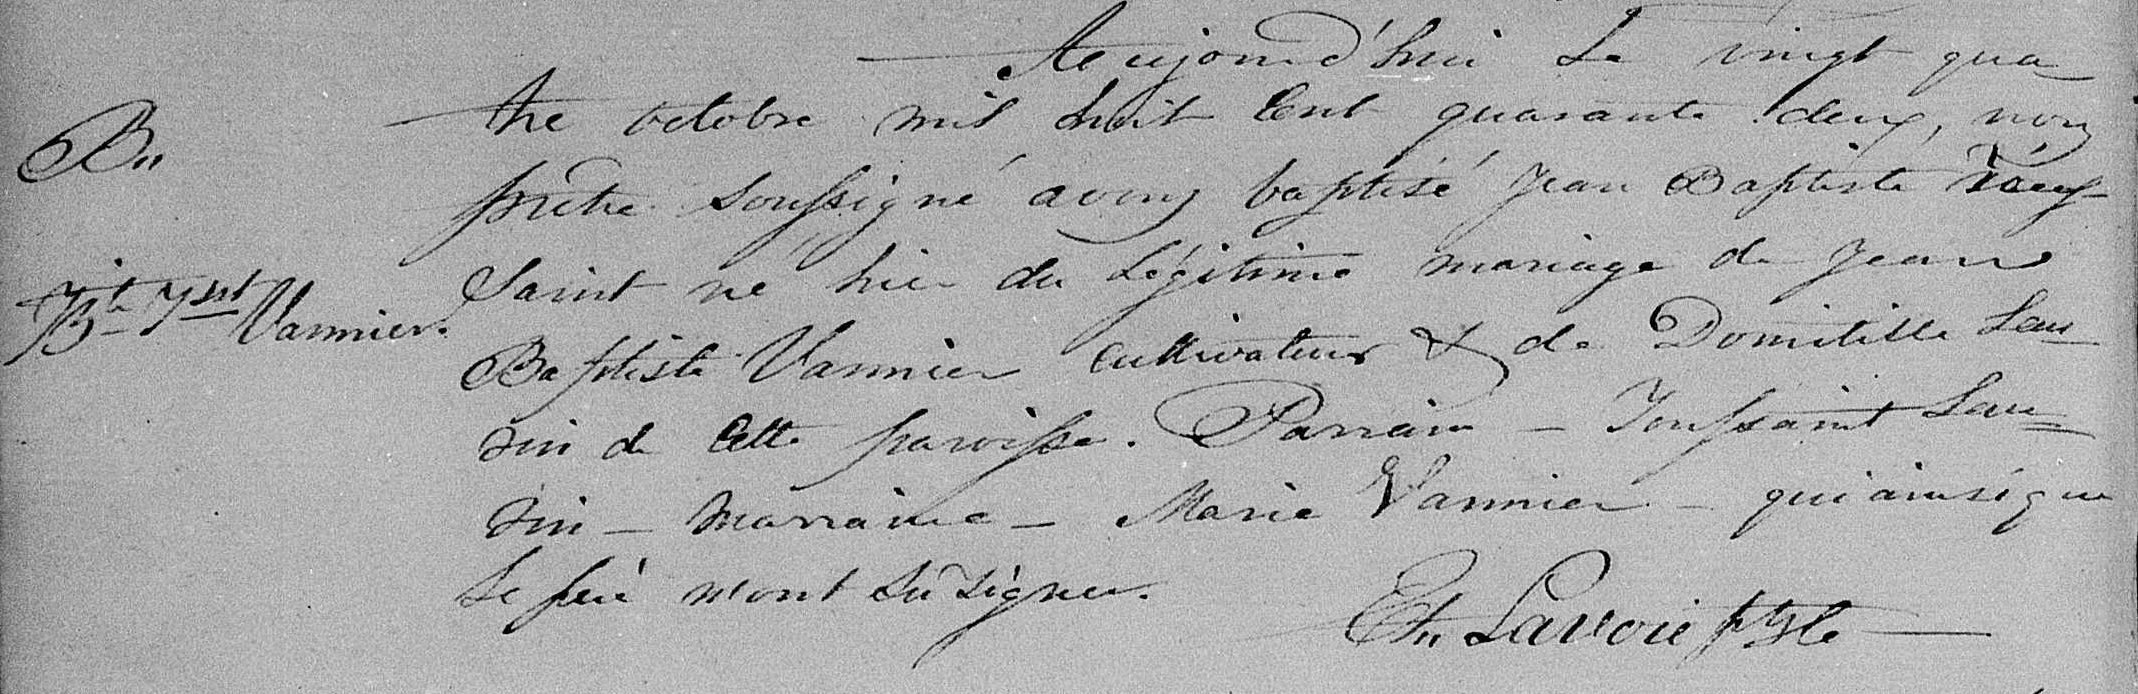 Aujourd'hui le vingt qua
B..
tre octobre mil huit Cent quarante deux, nous
prêtre soussigné avons baptisé Jean Baptiste
Jn Bte Tsst Vannier.
Saint né hier du légitime mariage de Jean
Baptiste Vannier cultivateur & de Domitille Lau=
zin de cette paroisse. Parrain – Toussaint Lau=
zin – marraine – Marie Vannier – qui ainsi que
le père n'ont su signer.
Et.. Lavoie ptre